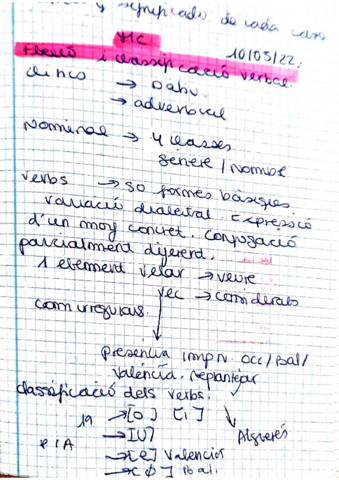 y significado de cada caso
10/05/22
Flexió i classificació verbal
clítics → 
→ adverbial
Nominal → 4 classes
gènere / nombre
verbs → 50 formes bàsiques
variació dialectal. Expressió
d'un morf concret. Conjugació
parcialment diferent.
1 element velar → veure
vec → considerats
com irregulars.
presència impn. occ/Bal/
valencià. Replantejar
classificació dels verbs.
19 → [o] [i] Alguerès
→ [u]
PIA → [e] Valencià
→ [ø] Bal.